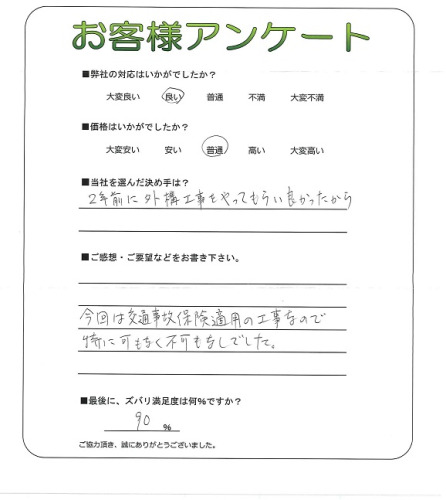 お客様アンケート
■弊社の対応はいかがでしたか？
大変良い 良い 普通 不満 大変不満
■価格はいかがでしたか？
大変安い 安い 普通 高い 大変高い
■当社を選んだ決め手は？
2年前に外構工事をやってもらい良かったから
■ご感想・ご要望などをお書き下さい。
今回は交通事故保険適用の工事なので
特に可もなく不可もなしでした。
■最後に、ズバリ満足度は何%ですか？
90 %
ご協力頂き、誠にありがとうございました。